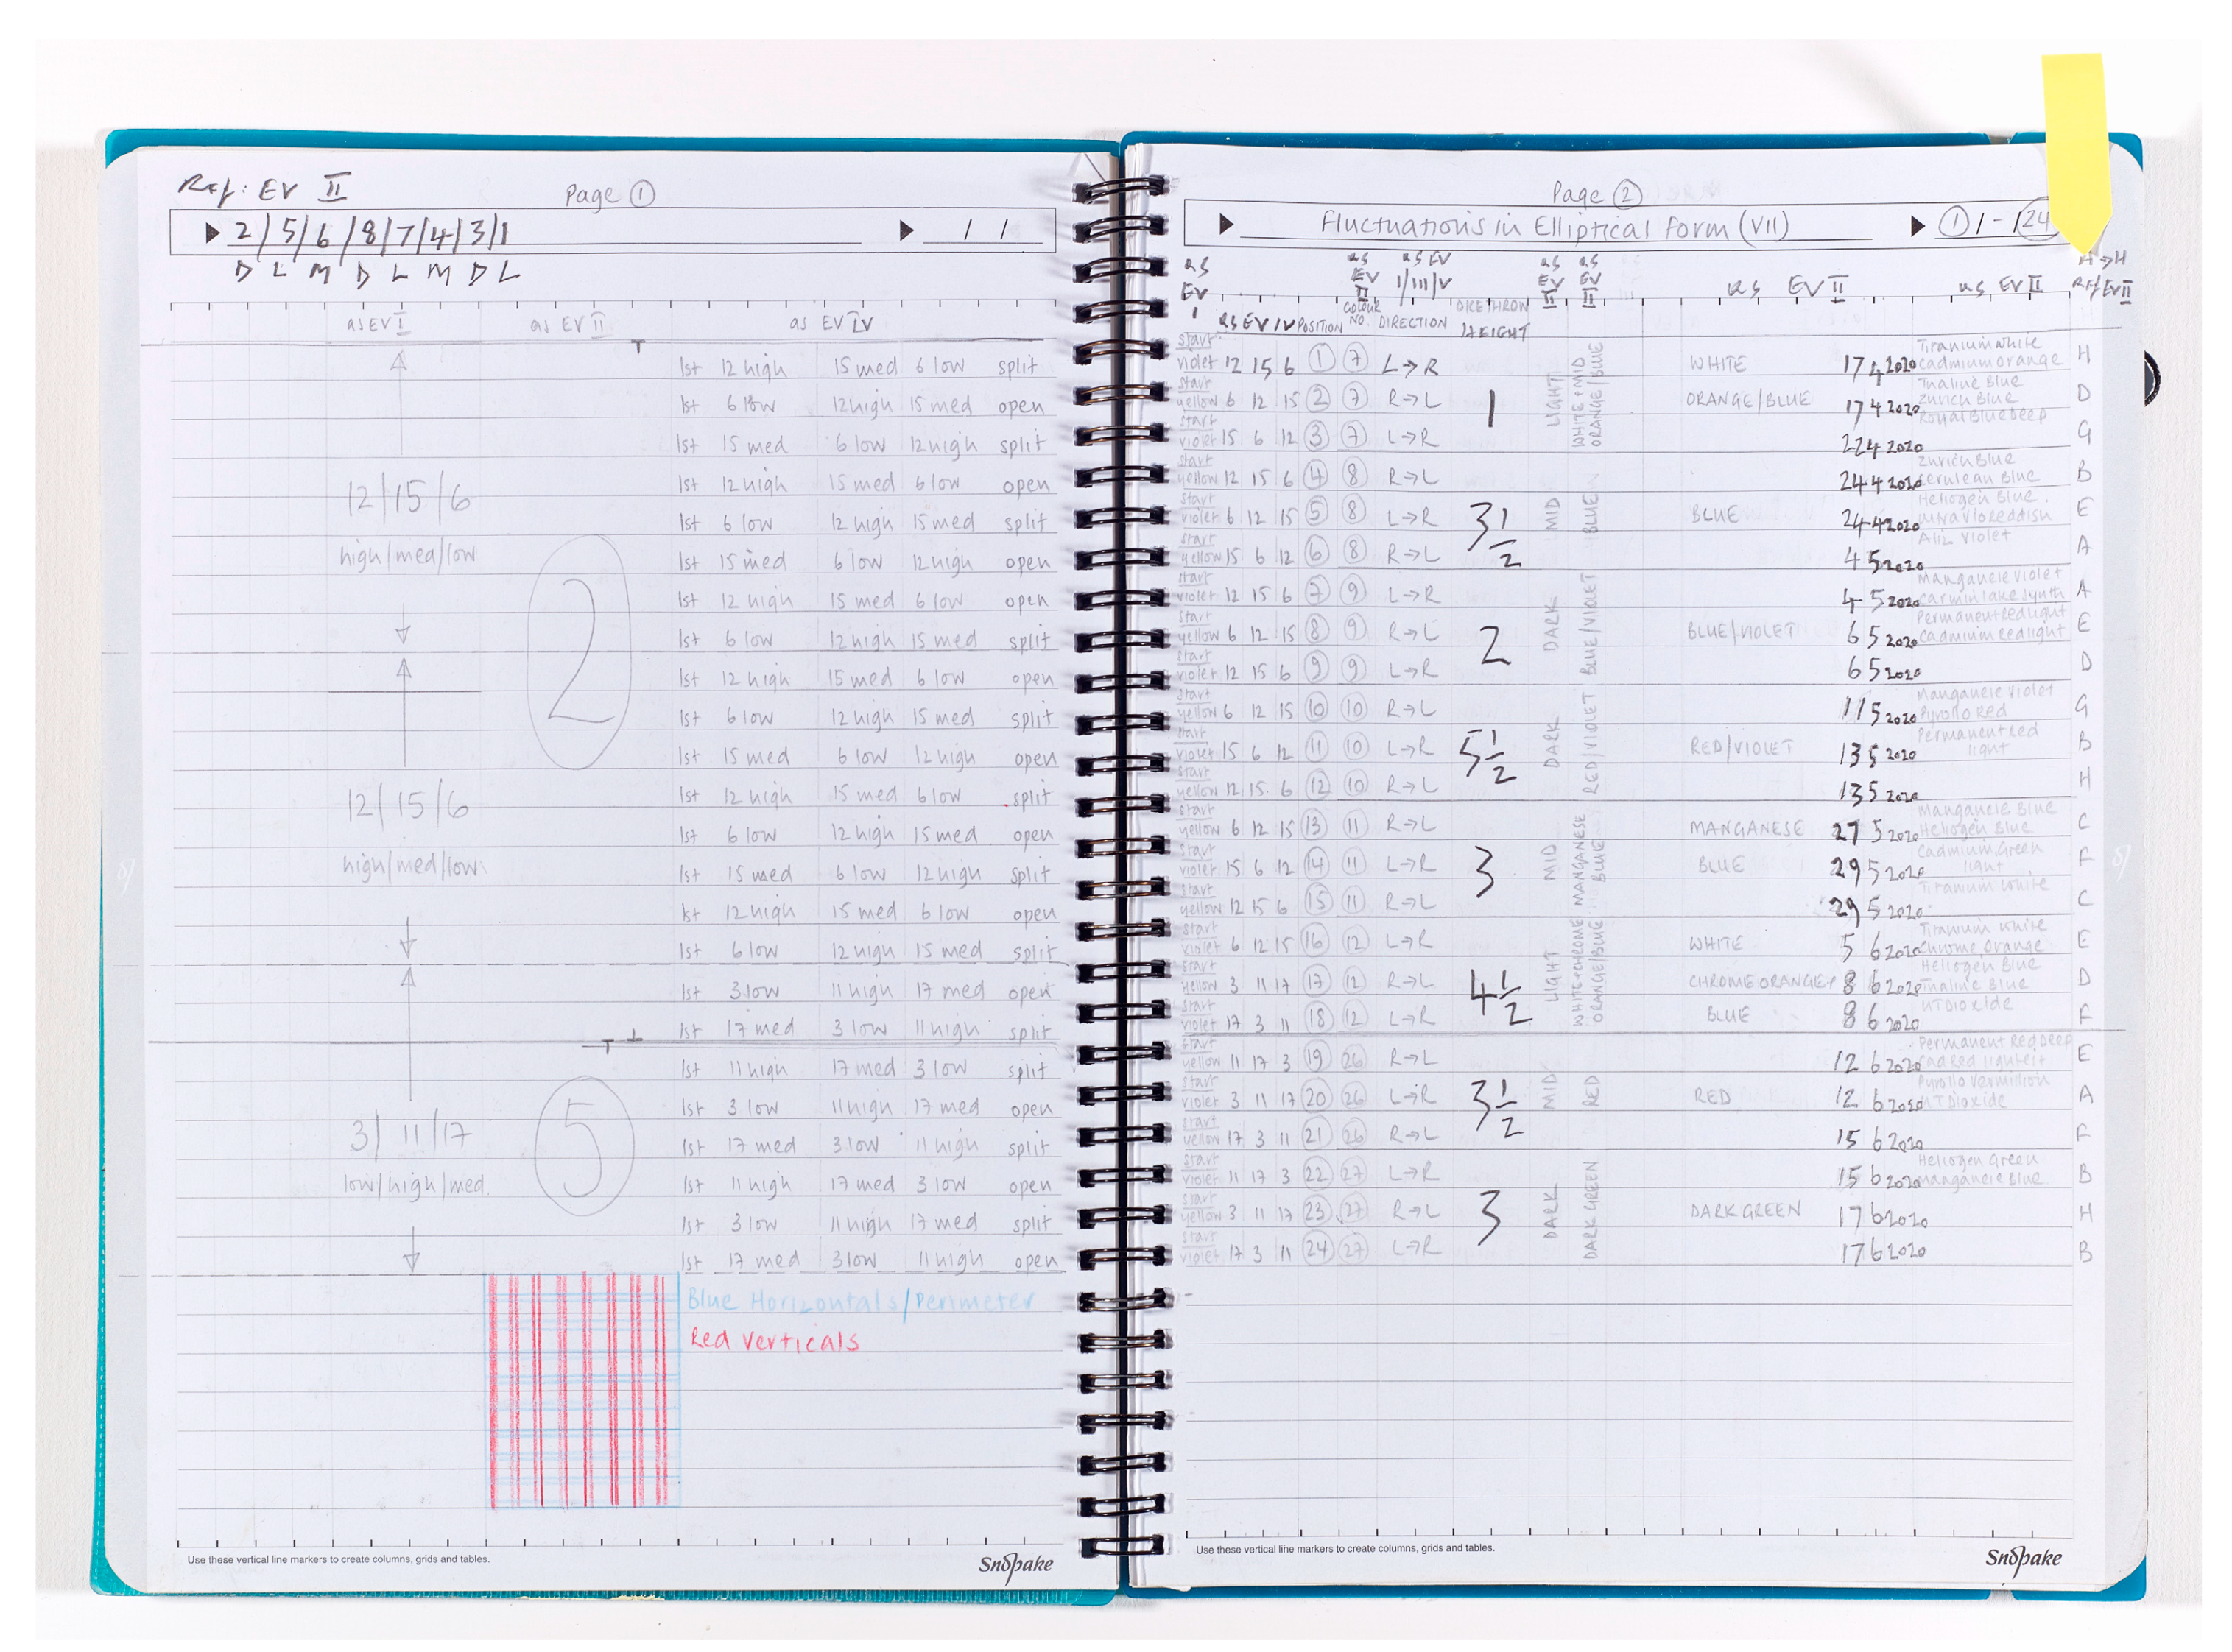 Ref: EV II
Page ①
2/5/6/8/7/4/3/1
/ /
D L M D L M D L
as EV I as EV II as EV IV
1st 12 high 15 med 6 low split
1st 6 low 12 high 15 med open
1st 15 med 6 low 12 high split
1st 12 high 15 med 6 low open
12/15/6
1st 6 low 12 high 15 med split
high/med/low
1st 15 med 6 low 12 high open
1st 12 high 15 med 6 low open
2
1st 6 low 12 high 15 med split
1st 12 high 15 med 6 low open
1st 6 low 12 high 15 med split
1st 15 med 6 low 12 high open
12/15/6
1st 12 high 15 med 6 low split
1st 6 low 12 high 15 med open
high/med/low
1st 15 med 6 low 12 high split
1st 12 high 15 med 6 low open
1st 6 low 12 high 15 med split
1st 3 low 11 high 17 med open
1st 17 med 3 low 11 high split
1st 11 high 17 med 3 low split
1st 3 low 11 high 17 med open
3/11/17
5
1st 17 med 3 low 11 high split
low/high/med
1st 11 high 17 med 3 low open
1st 3 low 11 high 17 med split
1st 17 med 3 low 11 high open
Blue Horizontals/Perimeter
Red Verticals
Use these vertical line markers to create columns, grids and tables.
Snopake
Page ②
Fluctuations in Elliptical Form (VII)
①/-/24
H→H
as EV I as EV IV POSITION as EV II COLOUR NO. as EV I/III/V DIRECTION DICE THROW HEIGHT as EV as EV as EV II as EV II Ref EV II
start violet 12 15 6 ① ⑦ L→R WHITE 17 4 2020 Titanium White Cadmium orange H
start yellow 6 12 15 ② ⑦ R→L 1 LIGHT WHITE + MID ORANGE/BLUE ORANGE/BLUE 17 4 2020 Zurich Blue D
start violet 15 6 12 ③ ⑦ L→R 22 4 2020 Royal Blue Deep G
start yellow 12 15 6 ④ ⑧ R→L 24 4 2020 Zurich Blue Cerulean Blue B
start violet 6 12 15 ⑤ ⑧ L→R 3 1/2 MID BLUE BLUE 24 4 2020 Heliogen Blue E
start yellow 15 6 12 ⑥ ⑧ R→L 4 5 2020 Aliz Violet A
start violet 12 15 6 ⑦ ⑨ L→R 4 5 2020 Manganese Violet Carmin lake synth A
start yellow 6 12 15 ⑧ ⑨ R→L 2 DARK BLUE/VIOLET BLUE/VIOLET 6 5 2020 Permanent Red light Cadmium Red light E
start violet 12 15 6 ⑨ ⑨ L→R 6 5 2020 D
start yellow 6 12 15 ⑩ ⑩ R→L 11 5 2020 Manganese Violet Pyrollo Red G
start violet 15 6 12 ⑪ ⑩ L→R 5 1/2 DARK RED/VIOLET RED/VIOLET 13 5 2020 Permanent Red light B
start yellow 12 15 6 ⑫ ⑩ R→L 13 5 2020 H
start yellow 6 12 15 ⑬ ⑪ R→L MANGANESE 27 5 2020 Manganese Blue Heliogen Blue C
start violet 15 6 12 ⑭ ⑪ L→R 3 MID MANGANESE BLUE BLUE 29 5 2020 Cadmium Green light F
start yellow 12 15 6 ⑮ ⑪ R→L 29 5 2020 Titanium White C
start violet 6 12 15 ⑯ ⑫ L→R WHITE 5 6 2020 Titanium White Chrome Orange E
start yellow 3 11 17 ⑰ ⑫ R→L 4 1/2 LIGHT WHITE + CHROME ORANGE/BLUE CHROME ORANGE + 8 6 2020 Heliogen Blue D
start violet 17 3 11 ⑱ ⑫ L→R BLUE 8 6 2020 MT Dioxide F
start yellow 11 17 3 ⑲ 26 R→L 12 6 2020 Permanent Red Deep Cad Red light E
start violet 3 11 17 ⑳ 26 L→R 3 1/2 MID RED RED 12 6 2020 Pyrollo Vermillion MT Dioxide A
start yellow 17 3 11 21 26 R→L 15 6 2020 F
start violet 11 17 3 22 27 L→R 15 6 2020 Heliogen Green Manganese Blue B
start yellow 3 11 17 23 27 R→L 3 DARK DARK GREEN DARK GREEN 17 6 2020 H
start violet 17 3 11 24 27 L→R 17 6 2020 B
Use these vertical line markers to create columns, grids and tables.
Snopake